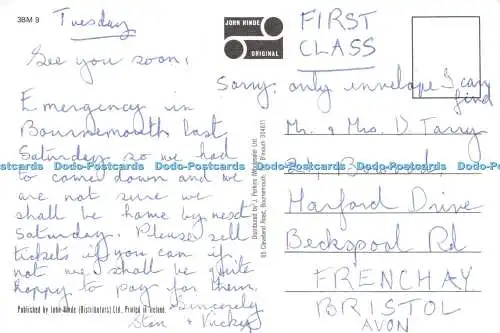 3BM 9
Tuesday
See you soon!
Emergency in
Bournemouth last
Saturday so we had
to come down and we
are not sure we
shall be home by next
Saturday. Please sell
tickets if you can if
not we shall be quite
happy to pay for them.
Sincerely
Stan & Vicky
Published by John Hinde (Distributors) Ltd., Printed in Ireland.
JOHN HINDE
ORIGINAL
Distributed by J. Ltd.
Cleveland Road, Bournemouth, B'mouth
FIRST
CLASS
Sorry; only envelope I can
find
Mr. & Mrs. D. Tarry
Harford Drive
Beckspool Rd
FRENCHAY
BRISTOL
AVON
Dodo-Postcards Dodo-Postcards Dodo-Postcards Dodo-Postcards